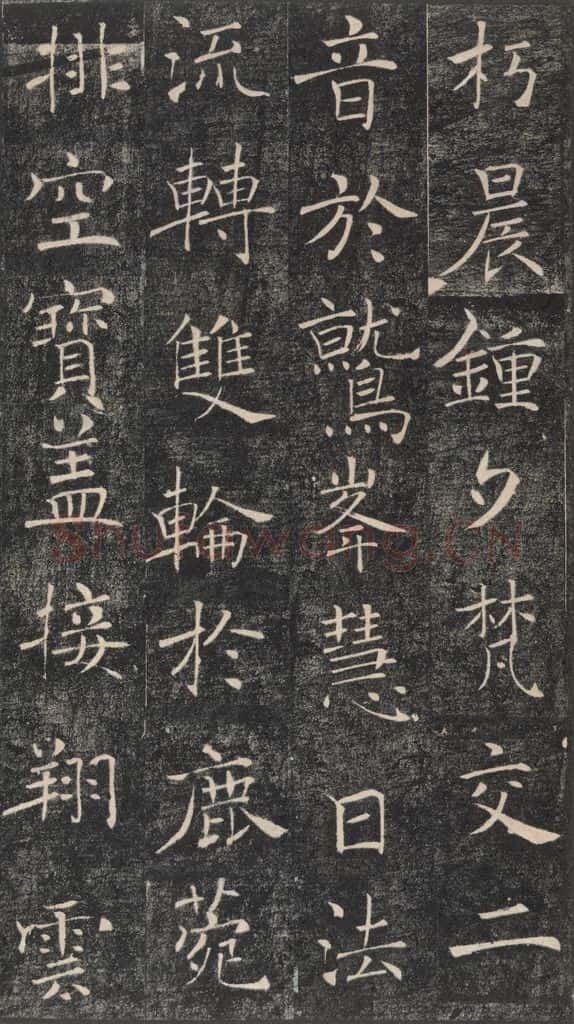 朽晨鍾夕梵交二
音於鷲峯慧日法
流轉雙輪於鹿菀
排空寶盖接翔雲
Shufawang.CN